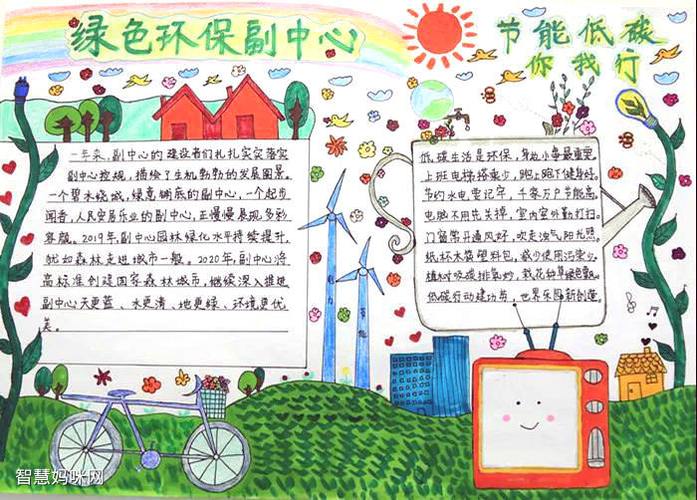 绿色环保副中心
节能低碳
你我行
一年来，副中心的建设者们扎扎实实落实
副中心控规，描绘了生机勃勃的发展图景。
一个碧水绕城，绿意铺底的副中心，一个起步
闻香，人民安居乐业的副中心，正慢慢展现多彩
容颜。2019年，副中心园林绿化水平持续提升，
犹如森林走进城市一般。2020年，副中心将
高标准创建国家森林城市，继续深入推进
副中心天更蓝、水更清、地更绿、环境更优
美。
低碳生活是环保，身边小事最重要。
上班电梯搭乘少，跑上跑下健身好。
节约水电要记牢，千家万户节能高。
电脑不用先关掉，室内室外勤打扫。
门窗常开通风好，吹走浊气阳光照。
纸杯木筷塑料包，减少使用污染少。
植树吸碳排氧妙，栽花种草绿色飘。
低碳行动建功劳，世界乐园新创造。
电力
节能
智慧妈咪网